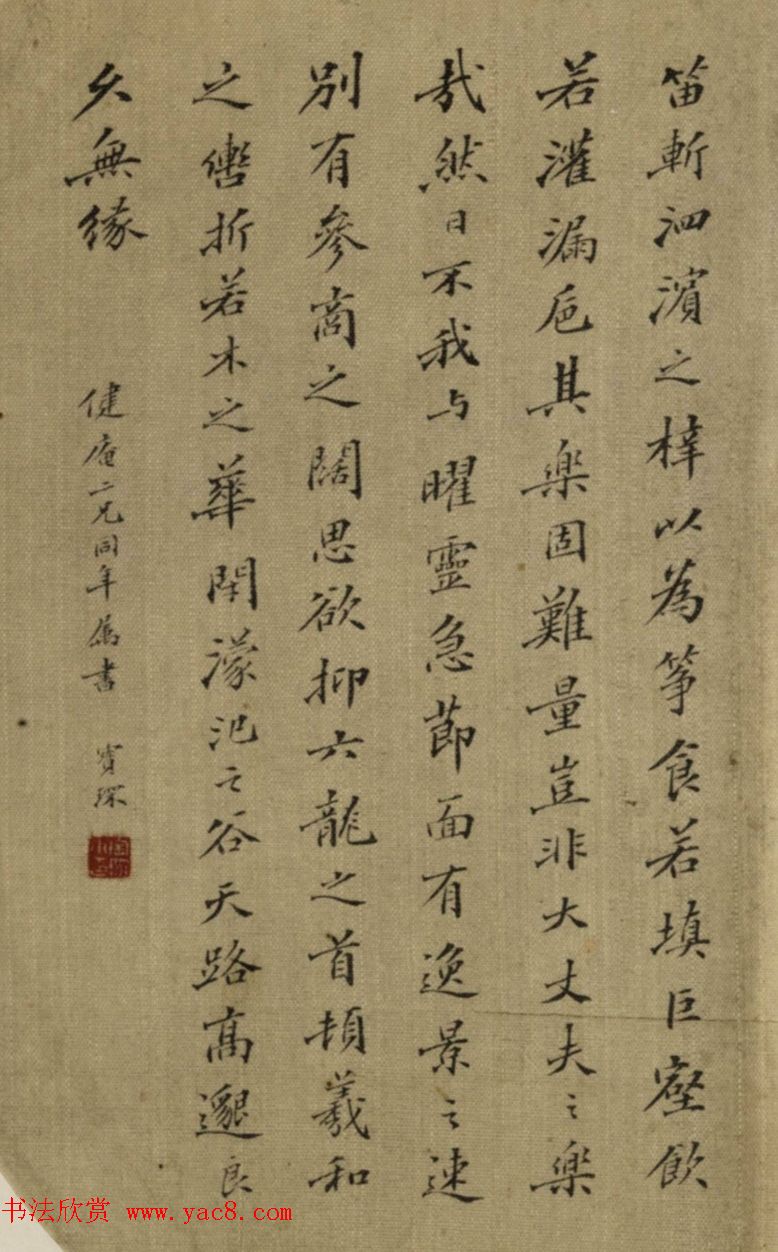 笛斬泗濱之梓以為箏食若填巨壑飲
若灌漏巵其樂固難量豈非大丈夫之樂
哉然日不我与曜靈急節面有逸景之速
別有參商之闊思欲抑六龍之首頓羲和
之轡折若木之華閇濛汜之谷天路高邈良
久無緣
健庵二兄同年屬書 寶琛
书法欣赏 www.yac8.com